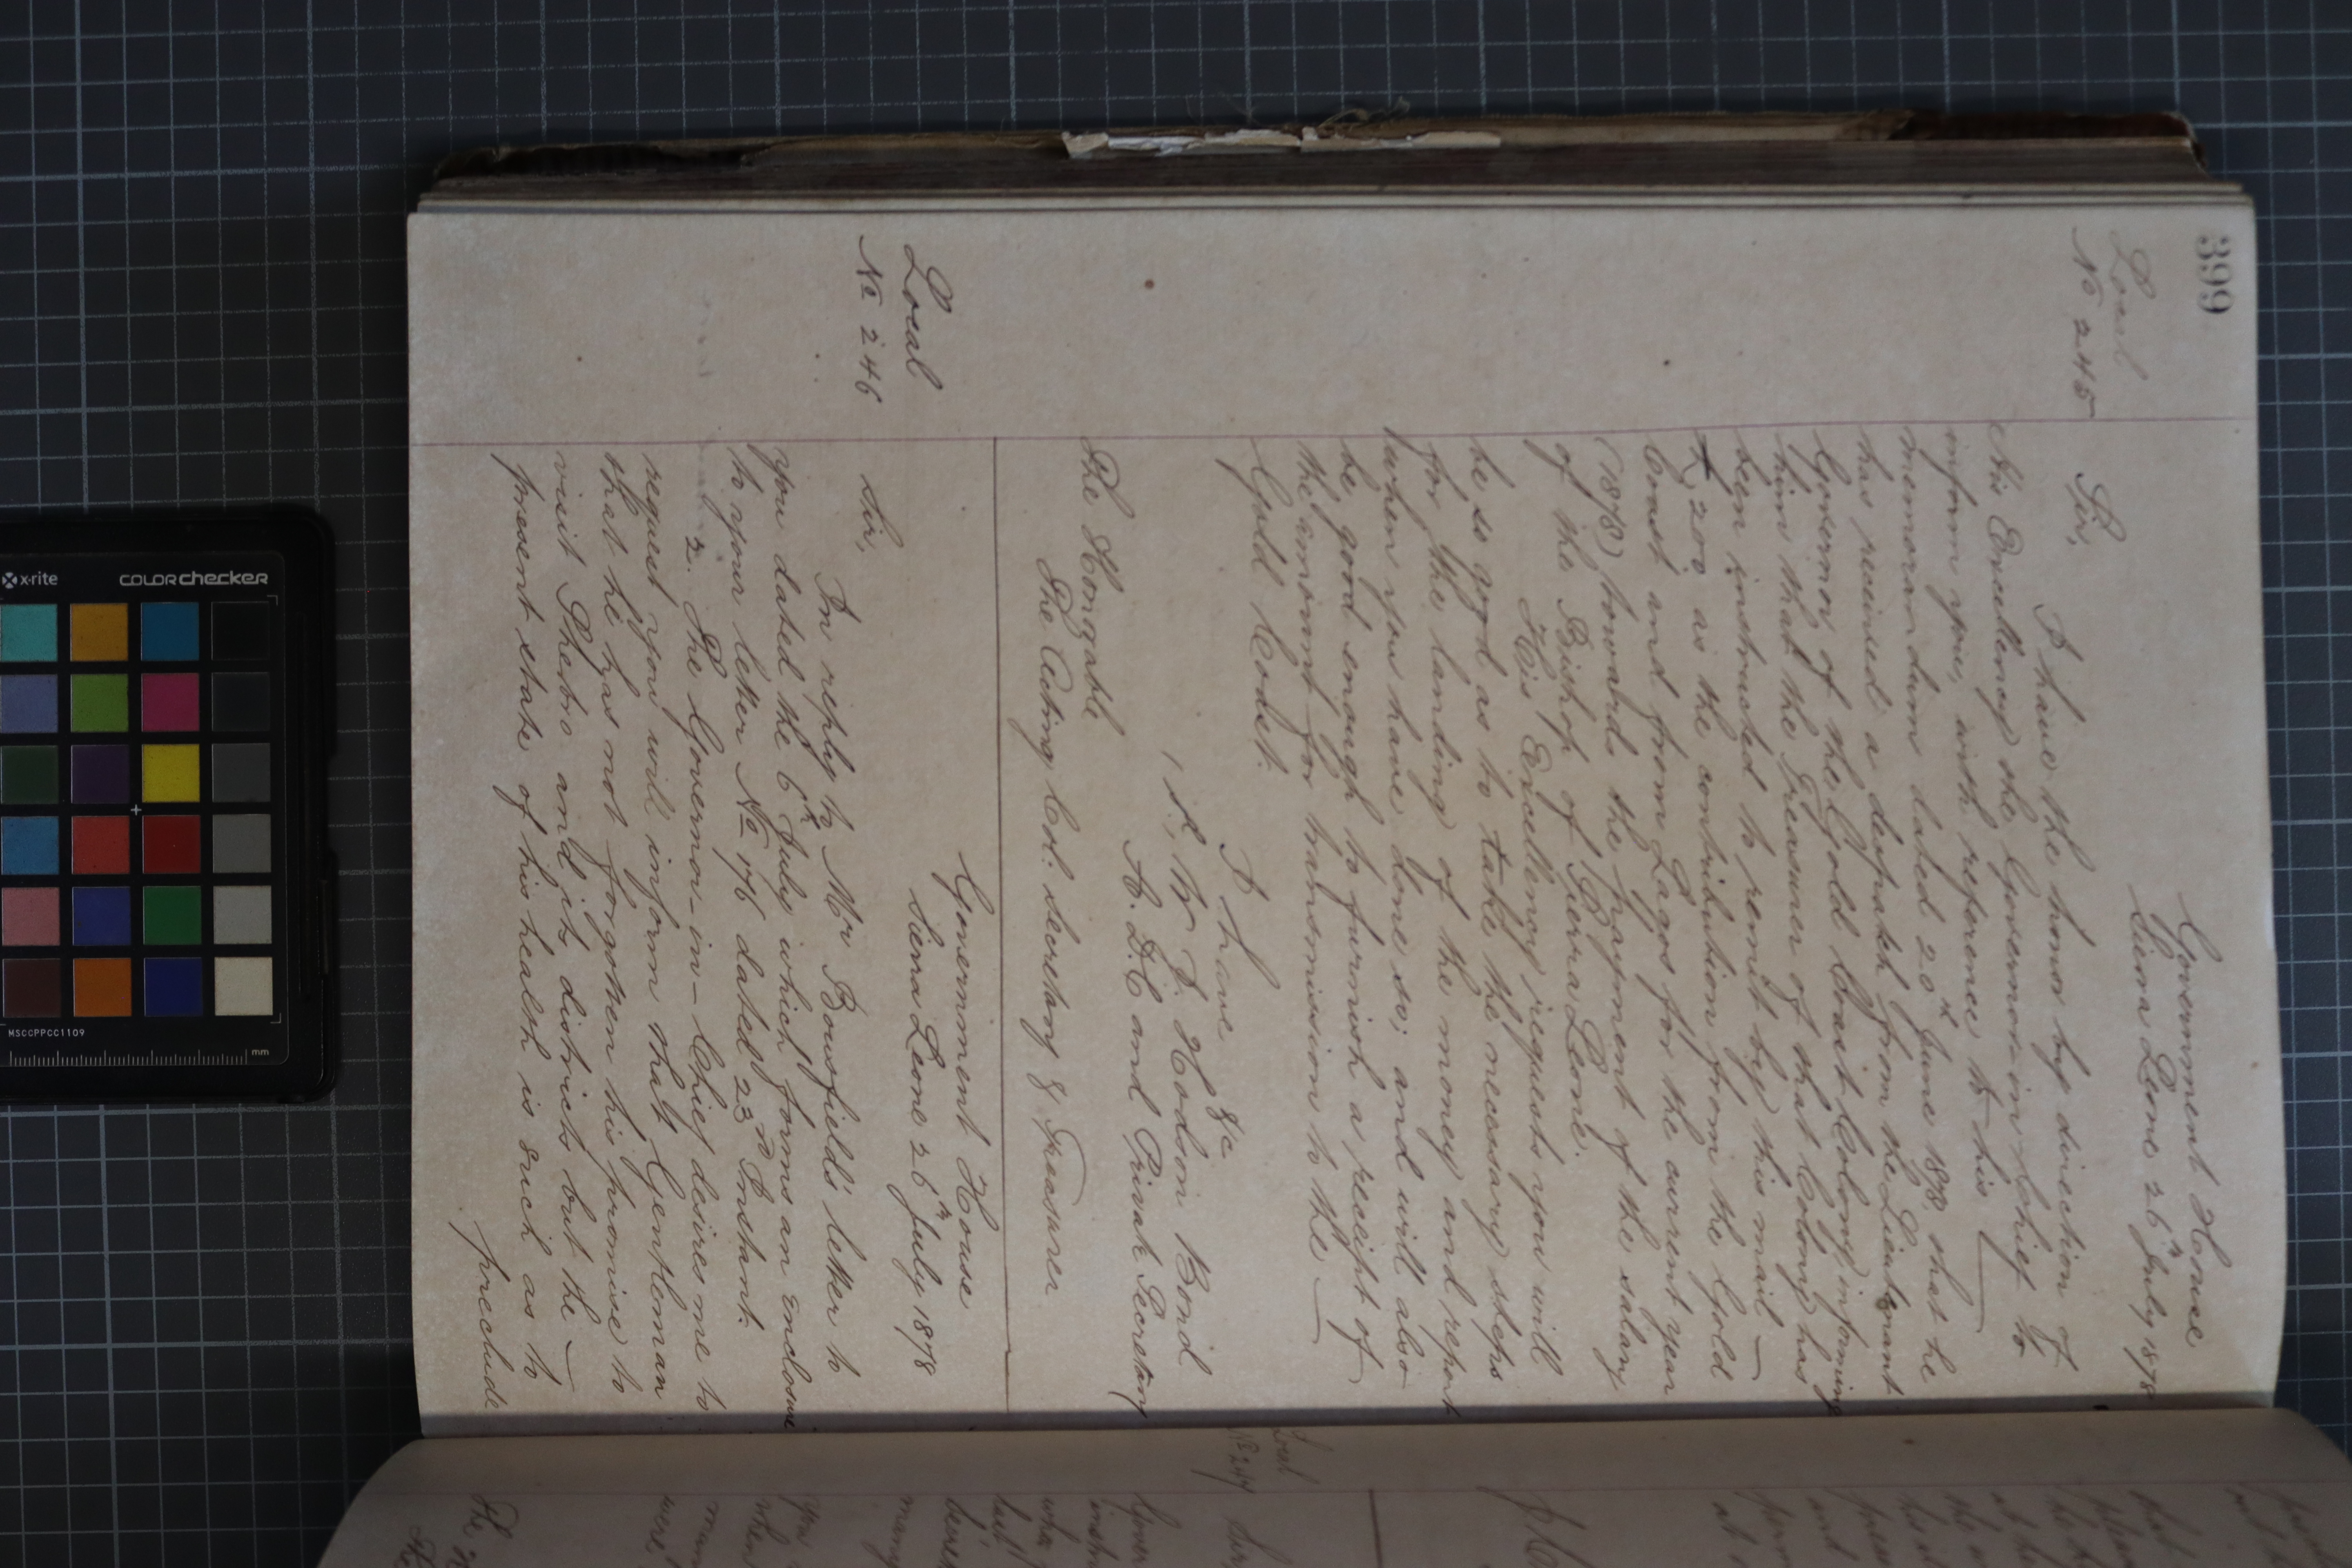 399
Government House
Sierra Leone 26th July 1878
Local
No 245
Sir,
I have the honor by direction of
His Excellency the Governor-in-Chief to
inform you, with reference to his
memorandum dated 20th June 1878, that he
has received a despatch from the Lieutenant
Governor of the Gold Coast Colony informing
him that the Treasurer of that Colony has
been instructed to remit by this mail
£200 as the contribution from the Gold
Coast and from Lagos for the current year
(1878) towards the payment of the salary
of the Bishop of Sierra Leone.
His Excellency requests you will
be so good as to take the necessary steps
for the landing of the money and report
when you have done so; and will also
be good enough to furnish a receipt of
the amount for transmission to the
Gold Coast.
I have &c
/s/ W. F. Hodson Bond
A.D.C and Private Secretary
The Hongable
The Acting Col. Secretary & Treasurer
Government House
Sierra Leone 26th July 1878
Local
No 246
Sir,
In reply to Mr Bousfield's letter to
you dated the 6th July which forms an enclosure
to your letter No 176 dated 23rd Instant.
2. The Governor-in-Chief desires me to
request you will inform that Gentleman
that he has not forgotten his promise to
visit Sherbro and its districts but the
present state of his health is such as to
preclude
Local
No 247
Sir,
The